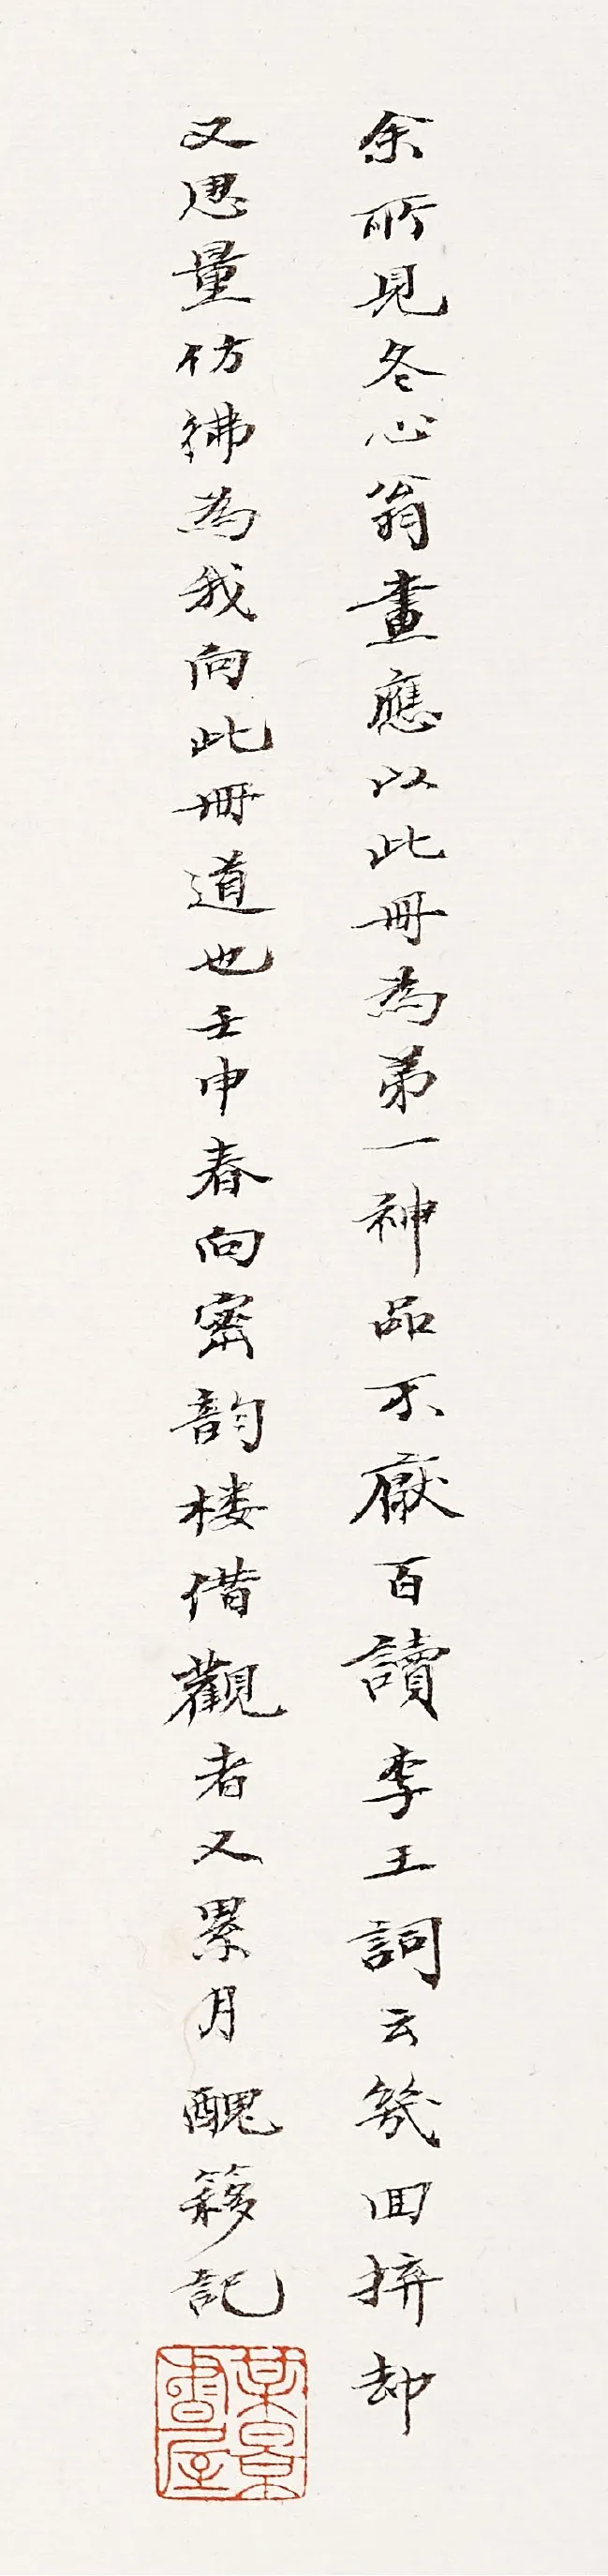 余所見冬心翁畫應以此冊為弟一神品不厭百讀李王詞云幾回拚却
又思量仿彿為我向此冊道也壬申春向密韵楼借觀者又累月醜簃記
某景書屋